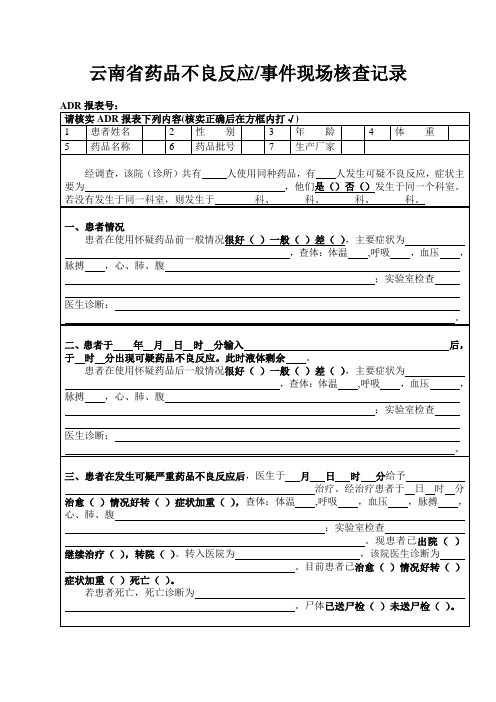 云南省药品不良反应/事件现场核查记录
ADR 报表号:
请核实 ADR 报表下列内容(核实正确后在方框内打√)
1 患者姓名 2 性 别 3 年 龄 4 体 重
5 药品名称 6 药品批号 7 生产厂家
经调查，该院（诊所）共有____人使用同种药品，有____人发生可疑不良反应，症状主
要为____，他们是（）否（）发生于同一个科室。
若没有发生于同一科室，则发生于____科、____科、____科、____科。
一、患者情况
患者在使用怀疑药品前一般情况很好（ ）一般（ ）差（ ），主要症状为____
____，查体：体温____,呼吸____，血压____，
脉搏____，心、肺、腹____
____；实验室检查____
医生诊断：____
____。
二、患者于____年__月__日__时__分输入____后，
于__时__分出现可疑药品不良反应。此时液体剩余____。
患者在使用怀疑药品后一般情况很好（ ）一般（ ）差（ ），主要症状为____
____，查体：体温____,呼吸____，血压____，
脉搏____，心、肺、腹____
____；实验室检查____
医生诊断：____
____。
三、患者在发生可疑严重药品不良反应后，医生于__月__日__时__分给予____
____治疗。经治疗患者于__日__时__分
治愈（ ）情况好转（ ）症状加重（ ），查体：体温____,呼吸____，血压____，脉搏____，
心、肺、腹____
____；实验室检查____
____。现患者已出院（ ）
继续治疗（ ），转院（ ）。转入医院为____，该院医生诊断为____
____。目前患者已治愈（ ）情况好转（ ）
症状加重（ ）死亡（ ）。
若患者死亡，死亡诊断为____
____。尸体已送尸检（ ）未送尸检（ ）。